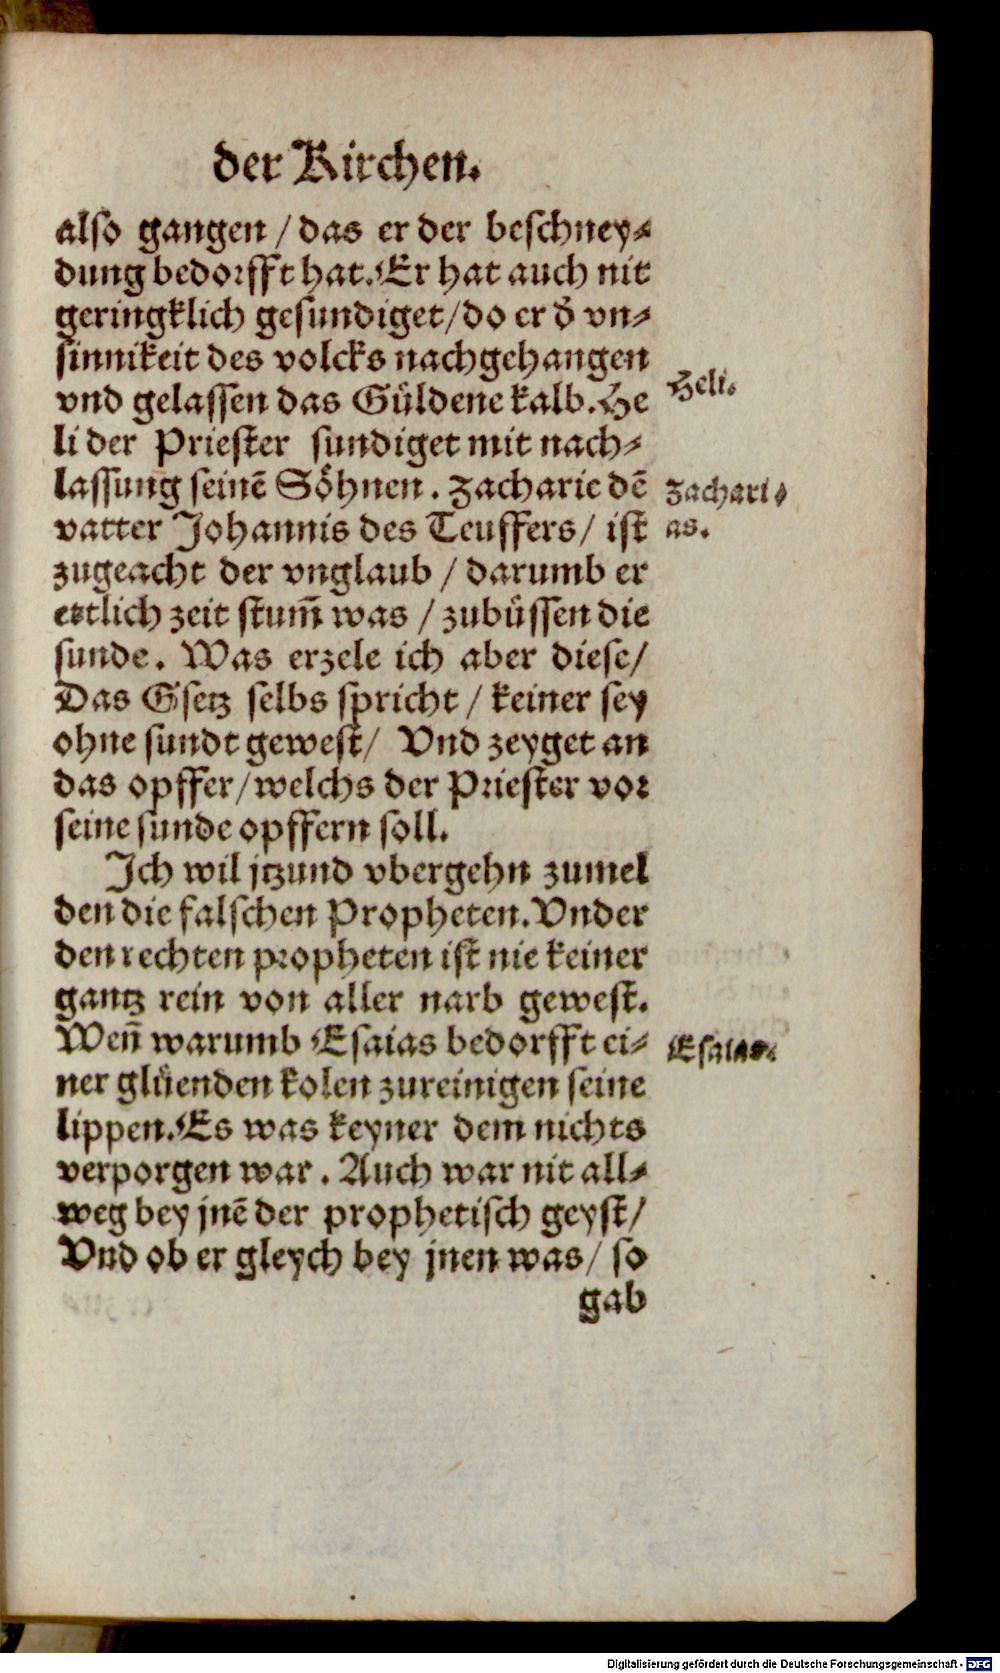 der Kirchen.
also gangen / das er der beschney⸗
dung bedorfft hat. Er hat auch nit
geringklich gesundiget / do er d̕ vn⸗
sinnikeit des volcks nachgehangen
vnd gelassen das Güldene kalb. He
Heli.
li der Priester sundiget mit nach⸗
lassung seinē Söhnen. Zacharie dē
Zachari⸗
vatter Johannis des Teuffers / ist
as.
zugeacht der vnglaub / darumb er
etlich zeit stum̄ was / zubüssen die
sunde. Was erzele ich aber diese /
Das Gsetz selbs spricht / keiner sey
ohne sundt gewest / Vnd zeyget an
das opffer / welchs der Priester vor
seine sunde opffern soll.
Ich wil jtzund vbergehn zumel
den die falschen Propheten. Vnder
den rechten propheten ist nie keiner
gantz rein von aller narb gewest.
Wen̄ warumb Esaias bedorfft ei⸗
Esaias.
ner glüenden kolen zureinigen seine
lippen. Es was keyner dem nichts
verporgen war. Auch war nit all⸗
weg bey jnē der prophetisch geyst /
Vnd ob er gleych bey jnen was / so
gab
Digitalisierung gefördert durch die Deutsche Forschungsgemeinschaft - DFG